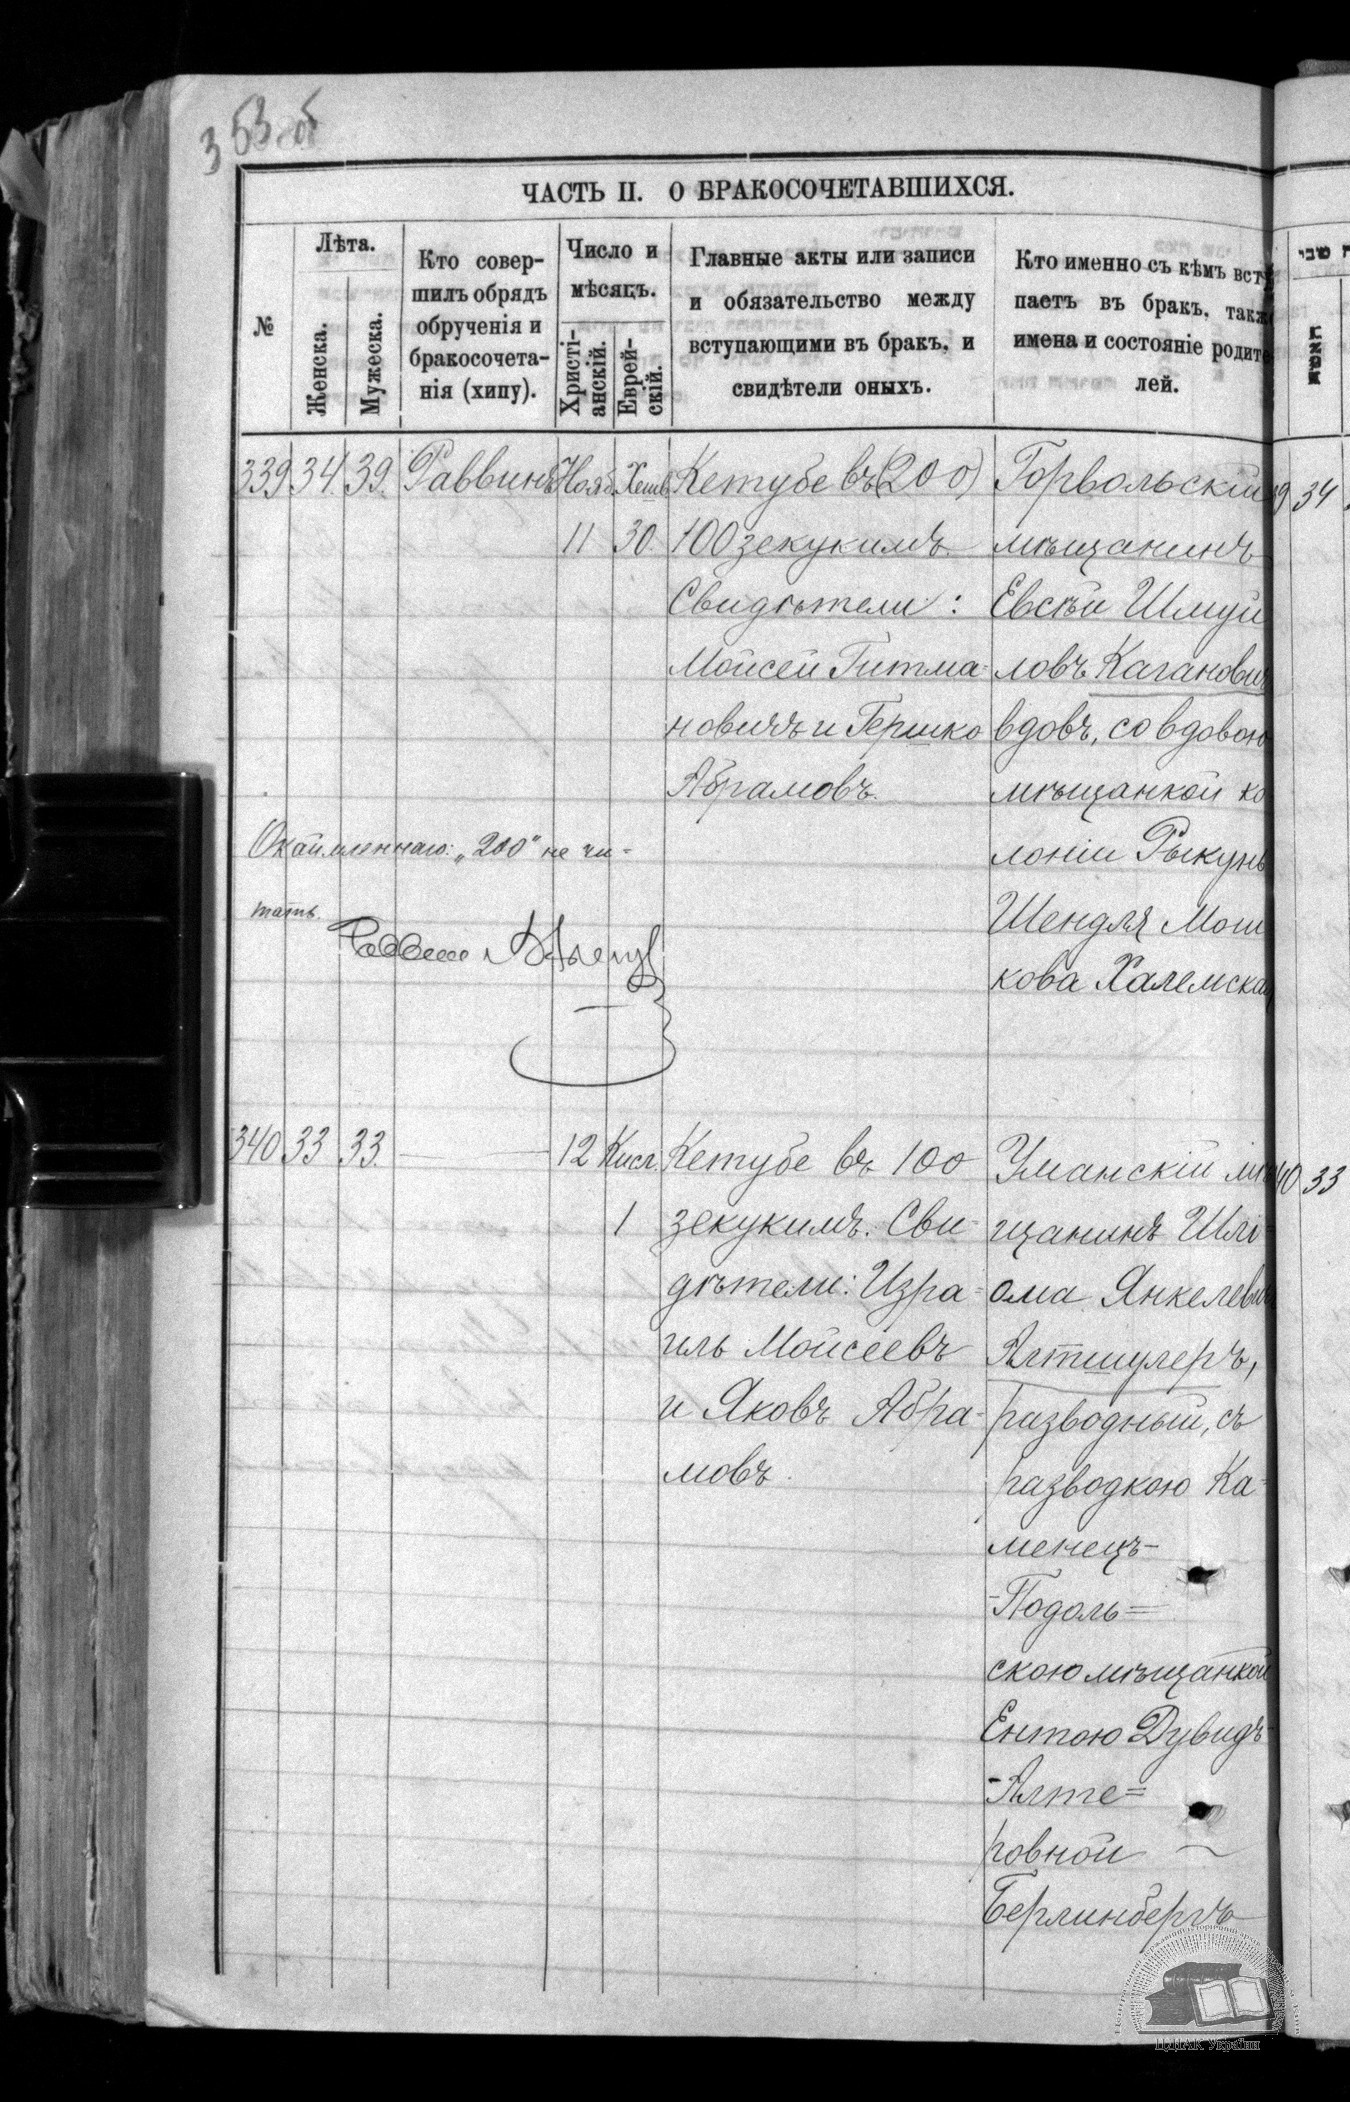 353 об
ЧАСТЬ II. О БРАКОСОЧЕТАВШИХСЯ.
№
Лѣта.
Женска.
Мужеска.
Кто совер-
шилъ обрядъ
обрученія и
бракосочета-
нія (хипу).
Число и
мѣсяцъ.
Христі-
анскій.
Еврей-
скій.
Главные акты или записи
и обязательство между
вступающими въ бракъ, и
свидѣтели оныхъ.
Кто именно съ кѣмъ всту
паетъ въ бракъ, такж
имена и состояніе родите
лей.
339 34. 39. Раввинъ Нояб. Хешв.
11 30.
Кетубе въ (200)
100 зекукимъ
Свидѣтели:
Мойсей Гитма-
новичъ и Гершко
Абрамовъ.
Горвольскій
мѣщанинъ
Евсѣй Шмуй
ловъ Каганович
вдовъ, со вдовою
мѣщанкой ко
лоніи Рыкунь
Шендля Мош
кова Халемская
Окаймленнаго: „200" не чи-
тать.
Раввинъ
340 33 33. — — 12 Кисл.
1
Кетубе въ 100
зекукимъ. Сви-
дѣтели: Изра-
иль Мойсеевъ
и Яковъ Абра-
мовъ.
Уманскій мѣ
щанинъ Шлі-
ома Янкелевич
Алтшулеръ,
разводный, съ
разводкою Ка-
менецъ-
-Подоль=
скою мѣщанкой
Ентою Дувидъ-
-Алте=
ровной
Берлинбергъ
שבי
9 34
40 33
ЦДІАК України